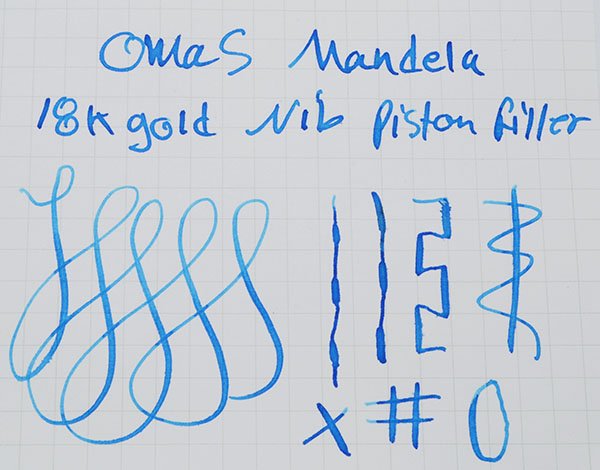 OMaS Mandela
18K gold Nib Piston filler
X # 0